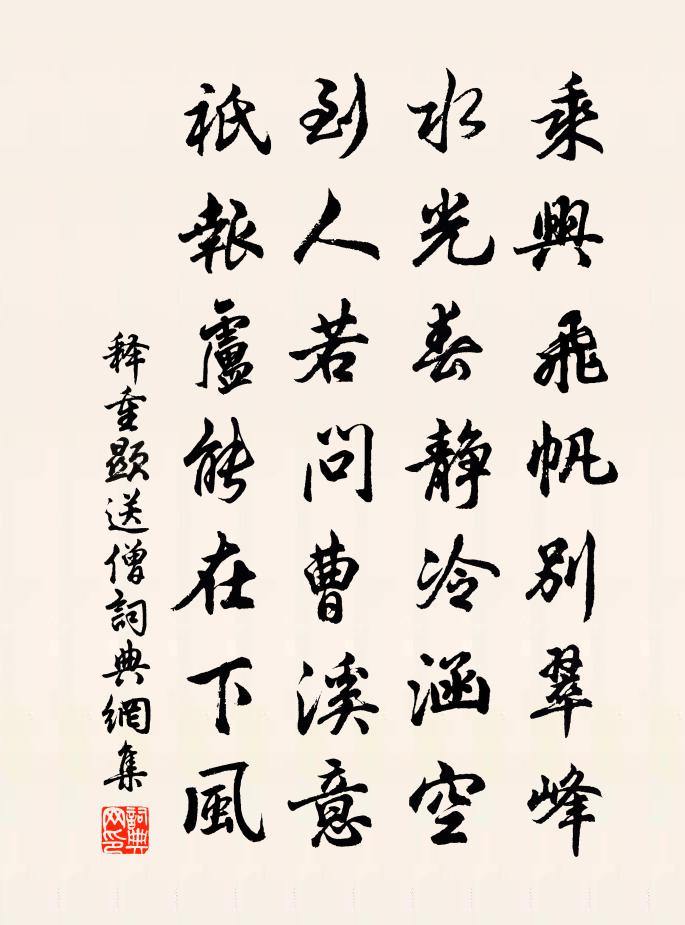 乘興飛帆別翠峰
水光春静冷涵空
到人若問曹溪意
祇報盧能在下風
释重顯送僧詞典網集
詞典网印